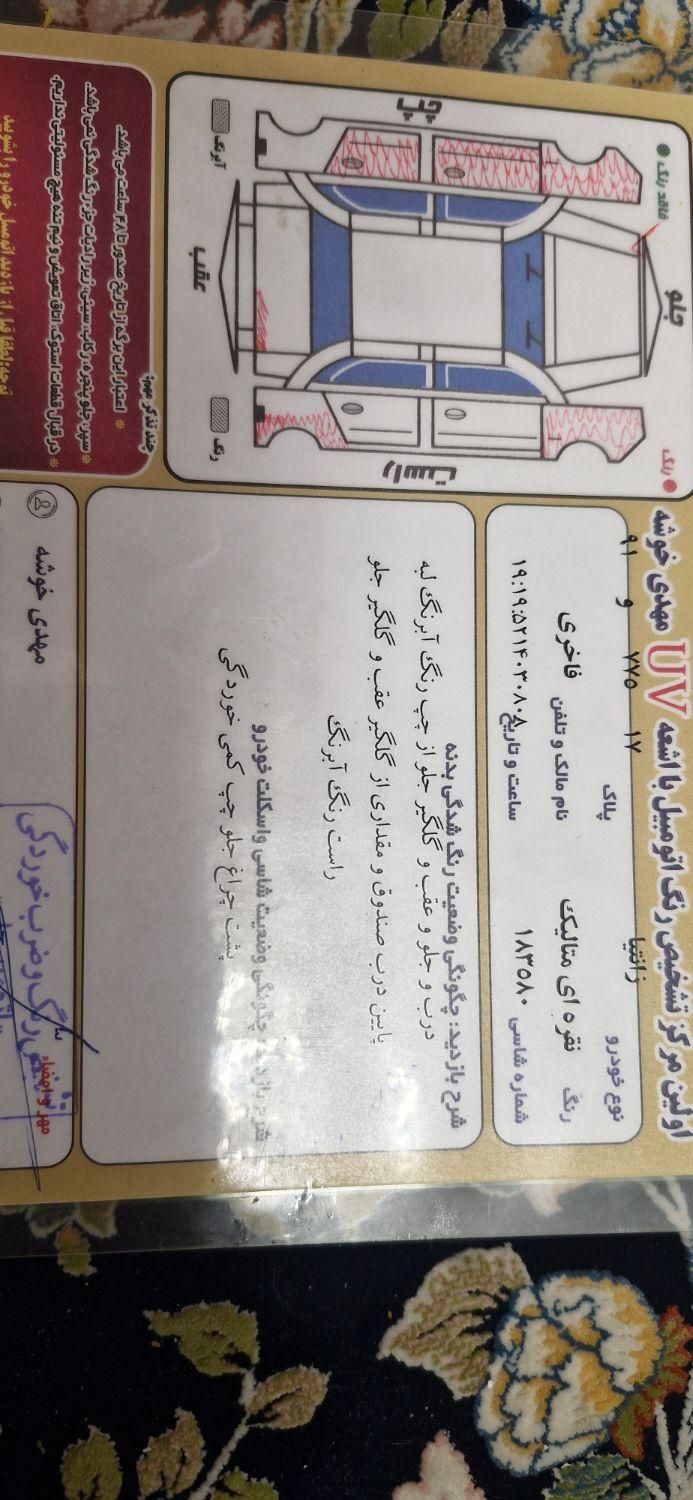 اولین مرکز تشخیص رنگ اتومبیل با اشعه UV مهدی خوشه
نوع خودرو زانتیا
پلاک ۱۷ ۷۷۵ و ۹۱
رنگ نقره ای متالیک
نام مالک و تلفن فاخری
شماره شاسی ۱۸۳۵۸۰
ساعت و تاریخ ۱۹:۱۹:۵۲۱۴۰۳۰۸۰۸
شرح بازدید: چگونگی وضعیت رنگ شدگی بدنه
درب و جلو و عقب و گلگیر جلو از چپ رنگ آبرنگ لبه
پایین درب صندوق و مقداری از گلگیر عقب و گلگیر جلو
راست رنگ آبرنگ
شرح بازدید: چگونگی وضعیت شاسی واسکلت خودرو
پشت چراغ جلو چپ کمی خوردگی
رنگ
فاقد رنگ
جلو
راست
چپ
عقب
رنگ
آبرنگ
چند تذکر مهم:
* اعتبار این برگه از تاریخ صدور تا ۴۸ ساعت می باشد.
* سپر، جلو پنجره، رکاب، سینی زیر رادیات جزء رنگ شدگی نمی باشد.
* در قبال قطعات استوک، اتاق تعویض و نیم تنه هیچ مسئولیتی نداریم.
توجه: لطفا قبل از بازدید اتومبیل خودرو را بشویید
مهر و امضاء
مهدی خوشه
رنگ و ضرب خوردگی